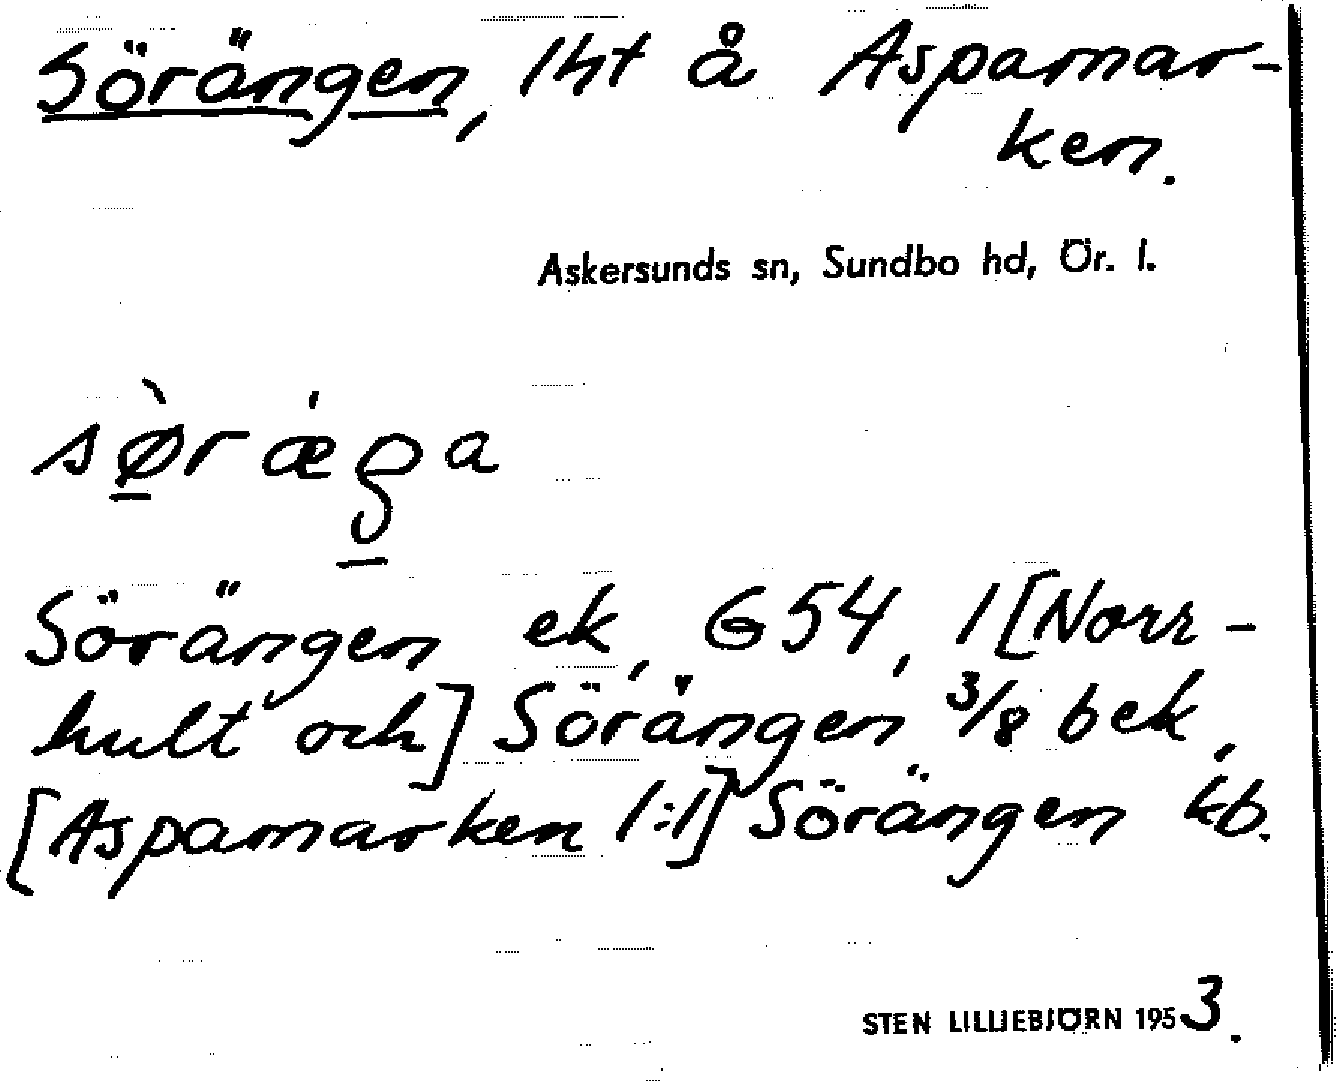 Sörängen, lht å Aspamar-
ken.
Askersunds sn, Sundbo hd, Ör. l.
Sörängen ek, G54, 1 [Norr-
hult och] Sörängen 3/8 bek,
[Aspamarken 1:1] Sörängen kb.
STEN LILLIEBJÖRN 1953.